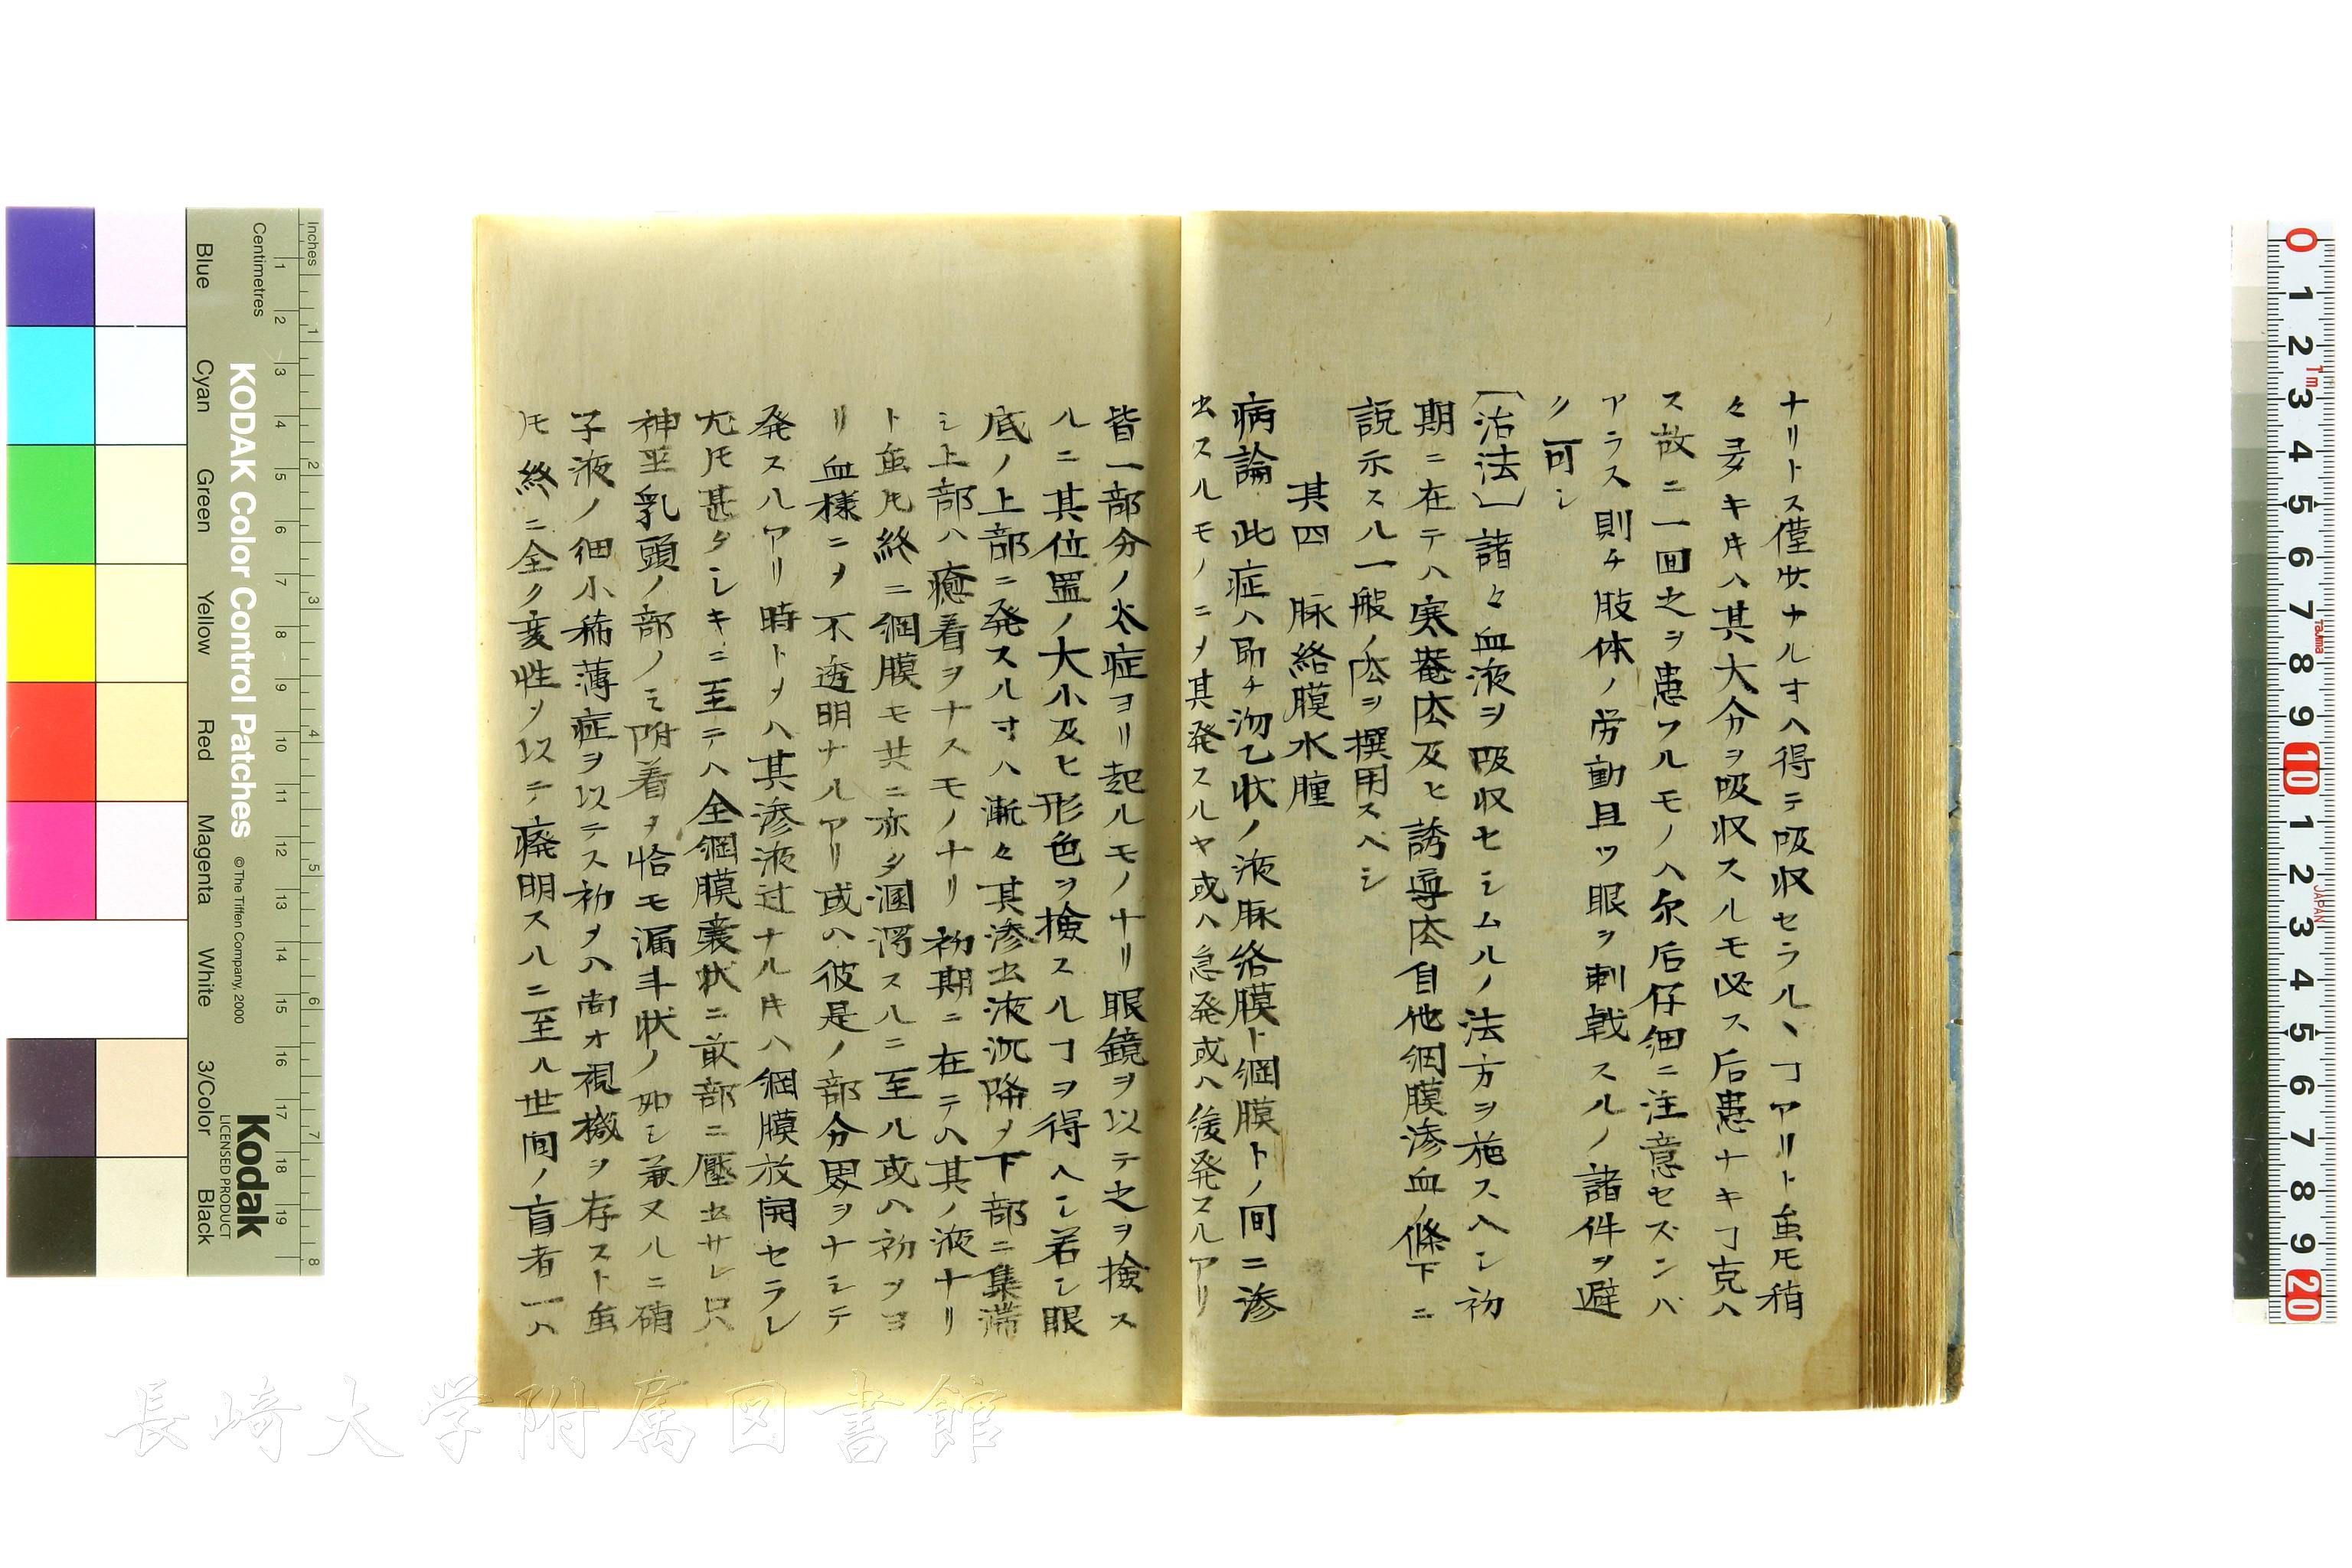 ナリトス僅少ナルオハ得テ吸収セラルヽヿアリト虽𪜈稍
々多キ𪜈ハ其大分ヲ吸収スルモ必ス后患ナキヿ克ハ
ス故ニ一回之ヲ患フルモノハ尓后仔細ニ注意セズンバ
アラス則チ肢体ノ労動且ツ眼ヲ刺戟スルノ諸件ヲ避
ク可シ
〔治法〕諸々血液ヲ吸収セシムルノ法方ヲ施スヘシ初
期ニ在テハ寒罨法及ヒ誘導法自他網膜滲血ノ條下ニ
説示スル一般ノ法ヲ撰用スベシ
其四 脉絡膜水腫
病論 此症ハ即チ沕乙状ノ液脉絡膜ト網膜トノ間ニ滲
出スルモノニメ其発スルヤ或ハ急発或ハ後発スルアリ
皆一部分ノ太症ヨリ起ルモノナリ眼鏡ヲ以テ之ヲ撿ス
ルニ其位置ノ大小及ヒ形色ヲ撿スルヿヲ得ヘシ若シ眼
底ノ上部ニ発スルオハ漸々其滲出液沉降メ下部ニ集滞
シ上部ハ癒着ヲナスモノナリ初期ニ在テハ其ノ液ナリ
ト虽𪜈終ニ網膜モ共ニ亦タ溷濁スルニ至ル或ハ初ヲヨ
リ血様ニメ不透明ナルアリ或ハ彼是ノ部分界ヲナシテ
発スルアリ時トメハ其滲液过ナル𪜈ハ網膜放開セラレ
尤𪜈甚タシキニ至テハ全網膜嚢状ニ前部ニ壓出サレ只
神巠乳頭ノ部ノミ附着メ恰モ漏斗状ノ如シ兼又ルニ硝
子液ノ細小稀薄症ヲ以テス初メハ尚オ視機ヲ存スト虽
𪜈終ニ全ク変性ヲ以テ廃明スルニ至ル世間ノ盲者一ハ
KODAK Color Control Patches
© The Tiffen Company, 2000
Kodak
LICENSED PRODUCT
Inches
Centimetres
Blue Cyan Green Yellow Red Magenta White 3/Color Black
1 2 3 4 5 6 7 8 9 10 11 12 13 14 15 16 17 18 19
1 2 3 4 5 6 7 8
0 1 2 3 4 5 6 7 8 9 10 1 2 3 4 5 6 7 8 9 20
1m
Tajima
JAPAN
長崎大学附属図書館